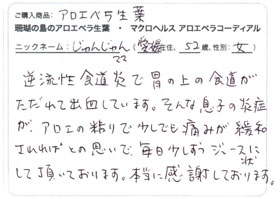 ご購入商品：アロエベラ生葉
珊瑚の島のアロエベラ生葉 ・ マクロヘルス アロエベラコーディアル
ニックネーム：じゅんじゅんママ（愛媛在住、52歳、性別：女）
逆流性食道炎で胃の上の食道が
ただれて出血しています。そんな息子の炎症
が、アロエの粘りで少しでも痛みが緩和
されればとの思いで、毎日少しずつジュースに
して頂いております。本当に感謝しております。